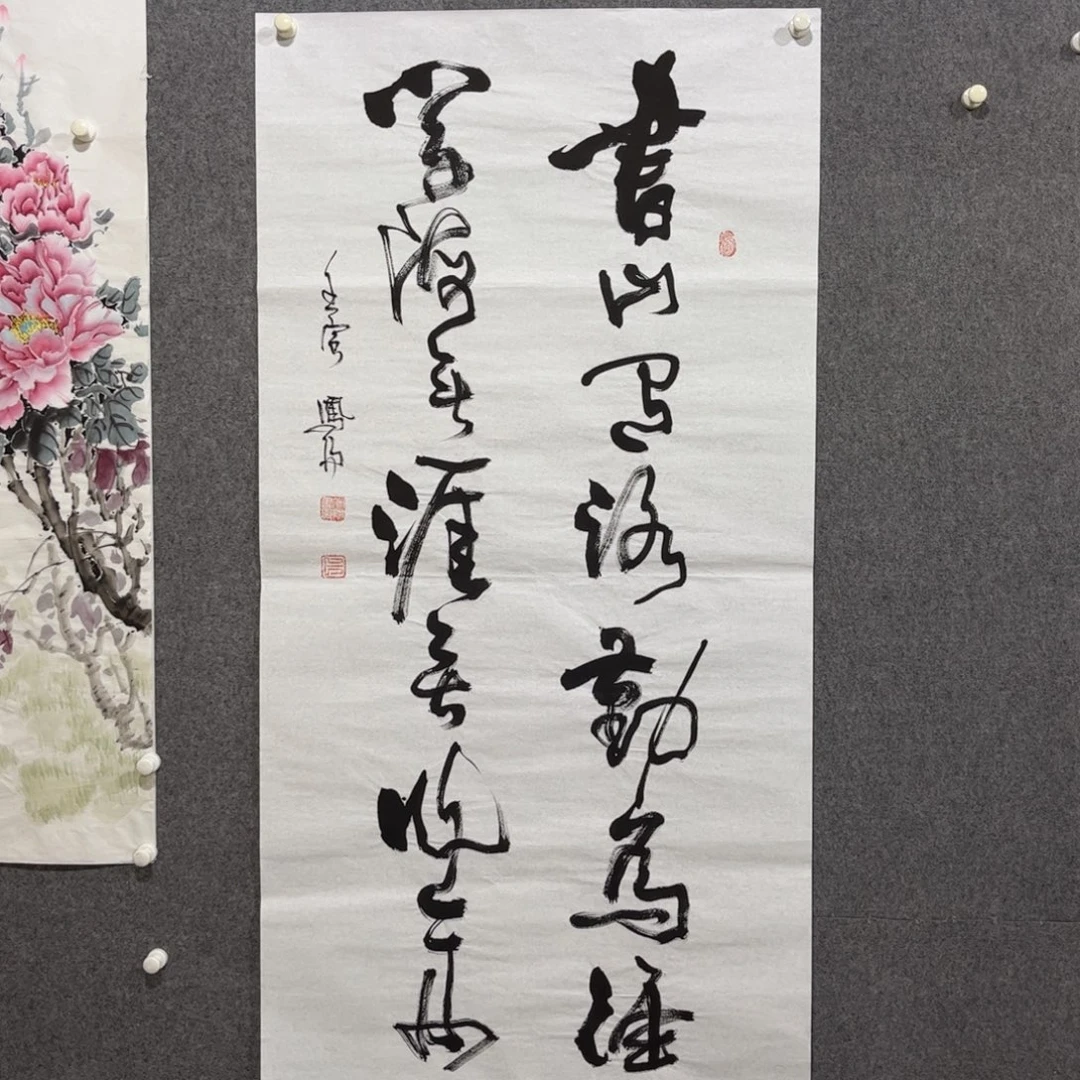 書山有路勤為徑
學海無涯苦作舟
壬寅 鳳